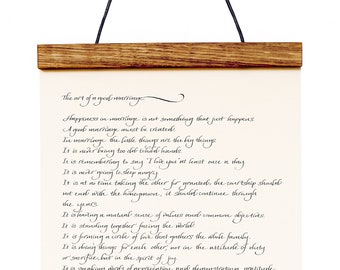 The art of a good marriage
Happiness in marriage is not something that just happens.
A good marriage must be created.
In marriage the little things are the big things.
It is never being too old to hold hands.
It is remembering to say 'I love you' at least once a day.
It is never going to sleep angry.
It is at no time taking the other for granted; the courtship should
not end with the honeymoon, it should continue through
the years.
It is having a mutual sense of values and common objectives.
It is standing together facing the world.
It is forming a circle of love that gathers the whole family.
It is doing things for each other, not in the attitude of duty
or sacrifice, but in the spirit of joy.
It is speaking words of appreciation and demonstrating gratitude